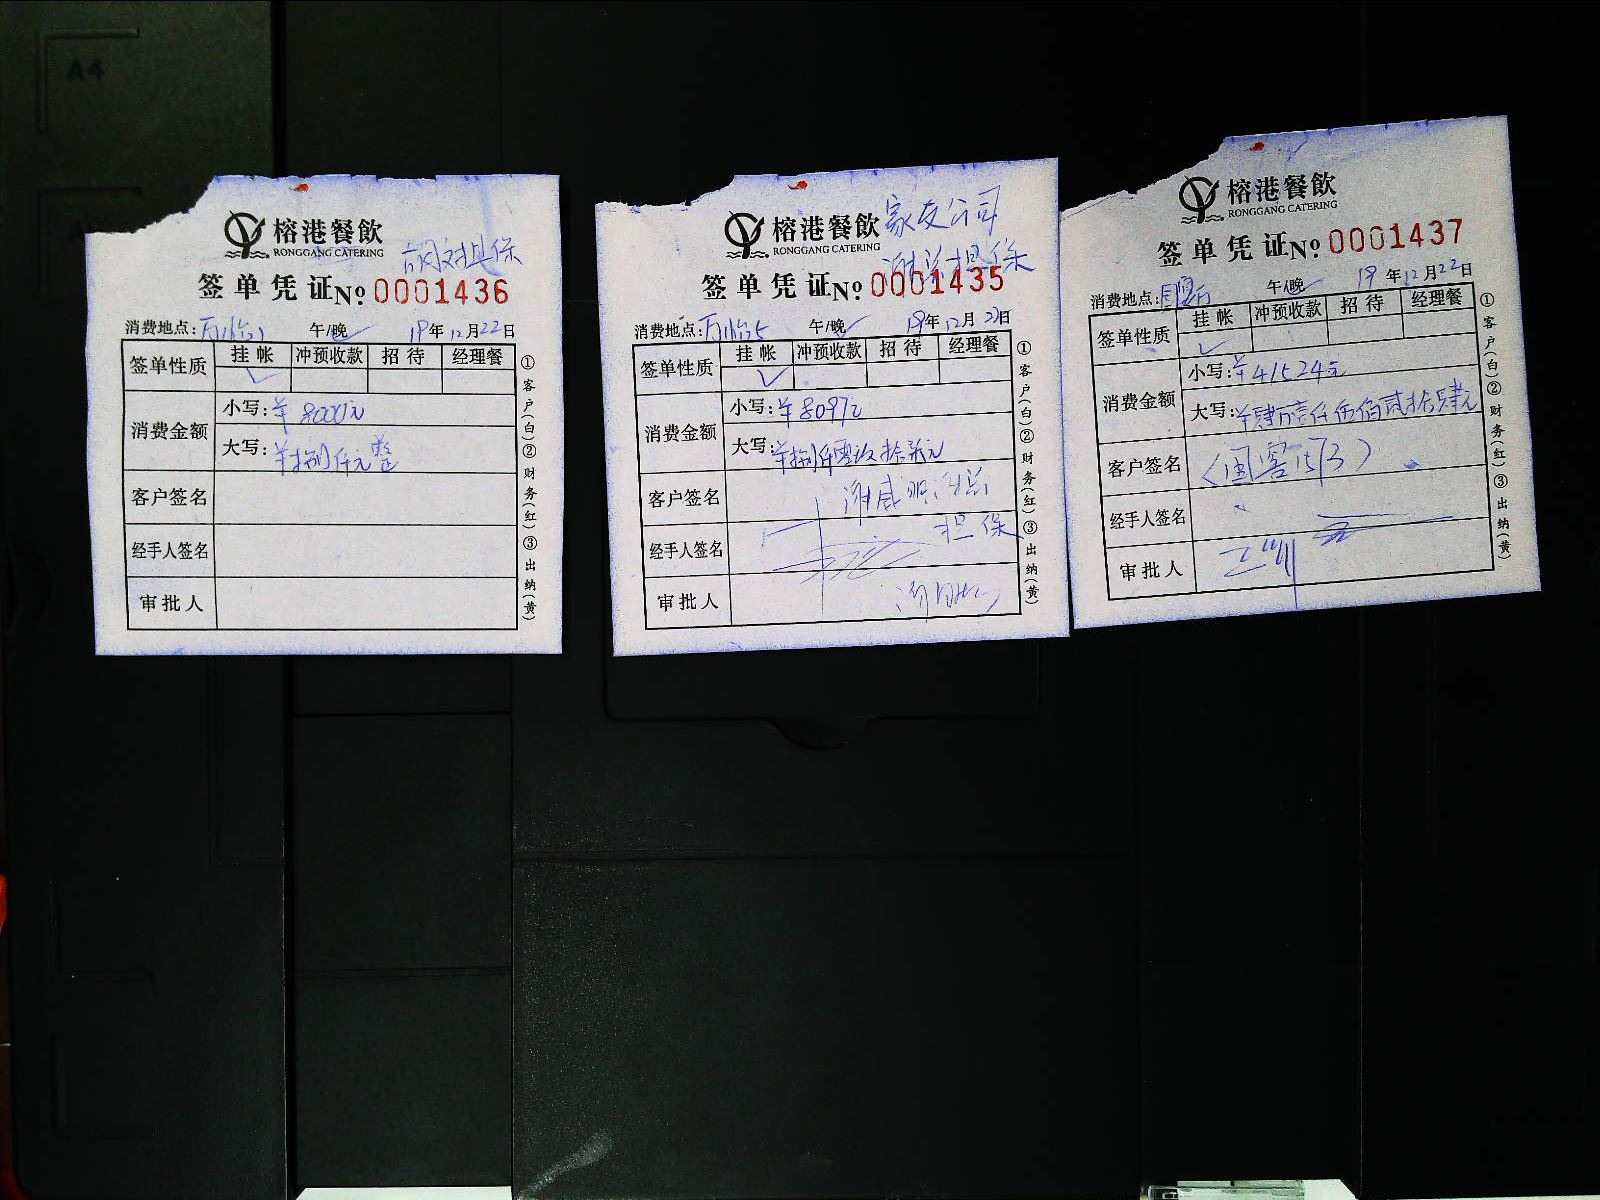 A4
榕港餐飲
RONGGANG CATERING
担保
签单凭证 No 0001436
消费地点: 午/晚 19年12月22日
签单性质 挂帐 冲预收款 招待 经理餐
✓
消费金额 小写:￥8000元
大写:￥捌仟元整
客户签名
经手人签名
审批人
①客户(白)②财务(红)③出纳(黄)
家友公司
榕港餐飲
RONGGANG CATERING
担保
签单凭证 No 0001435
消费地点: 午/晚 19年12月22日
签单性质 挂帐 冲预收款 招待 经理餐
✓
消费金额 小写:￥8097元
大写:￥捌仟零玖拾柒元
客户签名
担保
经手人签名
审批人
①客户(白)②财务(红)③出纳(黄)
榕港餐飲
RONGGANG CATERING
签单凭证 No 0001437
消费地点: 午/晚 19年12月22日
签单性质 挂帐 冲预收款 招待 经理餐
✓
消费金额 小写:￥41524元
大写:￥肆万壹仟伍佰贰拾肆元
客户签名 (国窖1573)
经手人签名
审批人
①客户(白)②财务(红)③出纳(黄)